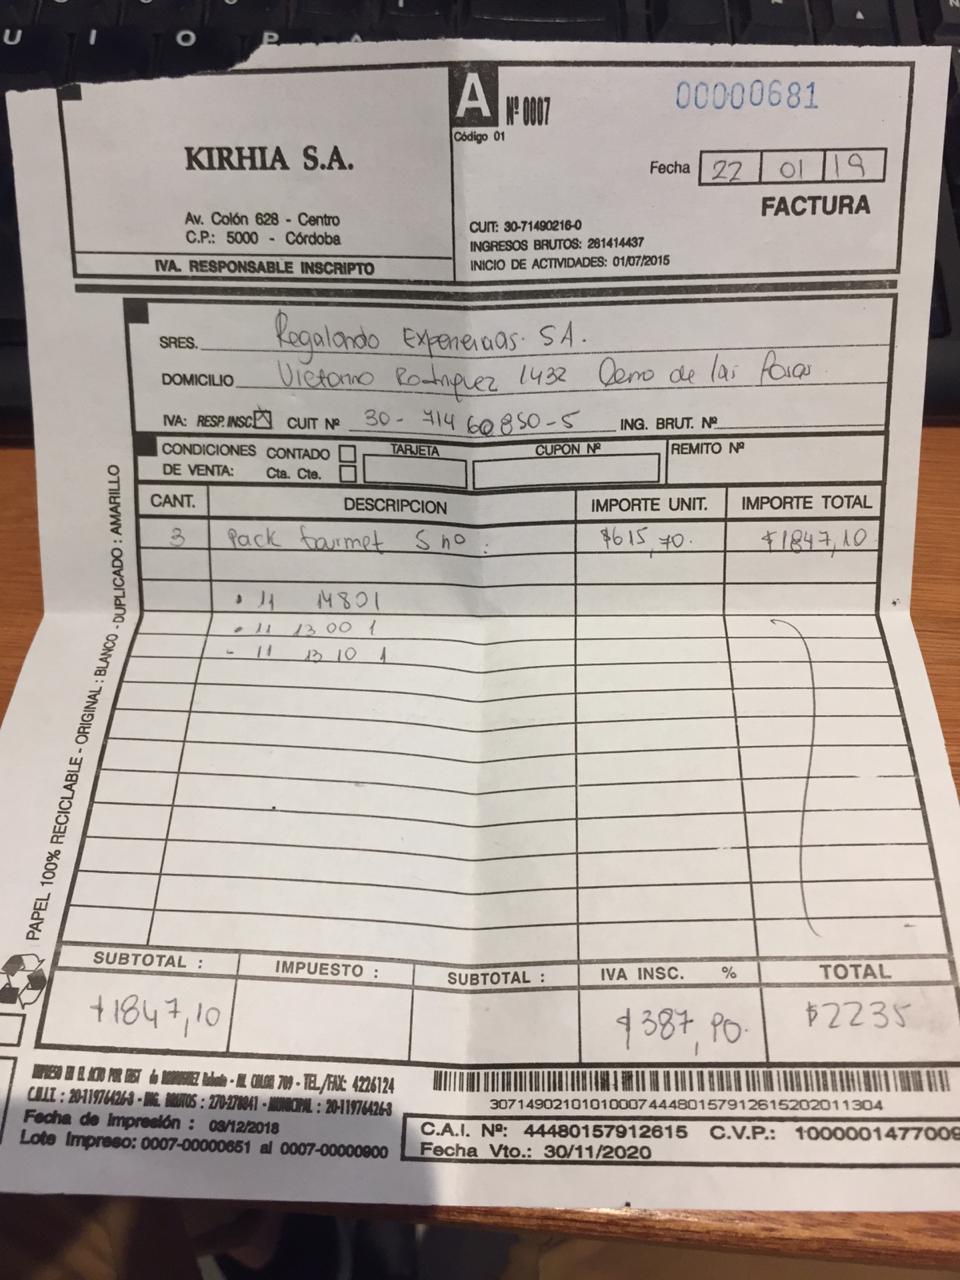 U I O P
A
Nº 0007
00000681
Código 01
KIRHIA S.A.
Fecha 22 01 19
FACTURA
Av. Colón 628 - Centro
C.P.: 5000 - Córdoba
IVA. RESPONSABLE INSCRIPTO
CUIT: 30-71490216-0
INGRESOS BRUTOS: 281414437
INICIO DE ACTIVIDADES: 01/07/2015
SRES. Regalando Experiencias. SA.
DOMICILIO Victorino Rodriguez 1432 Cerro de las Rosas
IVA: RESP. INSC. X CUIT Nº 30-71460850-5 ING. BRUT. Nº
CONDICIONES DE VENTA: CONTADO Cta. Cte. TARJETA CUPON Nº REMITO Nº
CANT. DESCRIPCION IMPORTE UNIT. IMPORTE TOTAL
3 Pack Gourmet S nº: $615,70. $1847,10
• 11 14801
• 11 13001
- 11 13101
PAPEL 100% RECICLABLE - ORIGINAL : BLANCO - DUPLICADO : AMARILLO
SUBTOTAL : IMPUESTO : SUBTOTAL : IVA INSC. % TOTAL
$1847,10 $387,90. $2235
IMPRESO EN EL ACTO POR de RODRIGUEZ Roberto - AV. COLON 709 - TEL./FAX: 4226124
C.U.I.T. : 20-11976426-3 - ING. BRUTOS : 270-276841 - MUNICIPAL : 20-11976426-3
Fecha de Impresión : 03/12/2018
Lote Impreso: 0007-00000651 al 0007-00000900
307149021010100074448015791261520201130​4
C.A.I. Nº: 44480157912615 C.V.P.: 1000001477009
Fecha Vto.: 30/11/2020